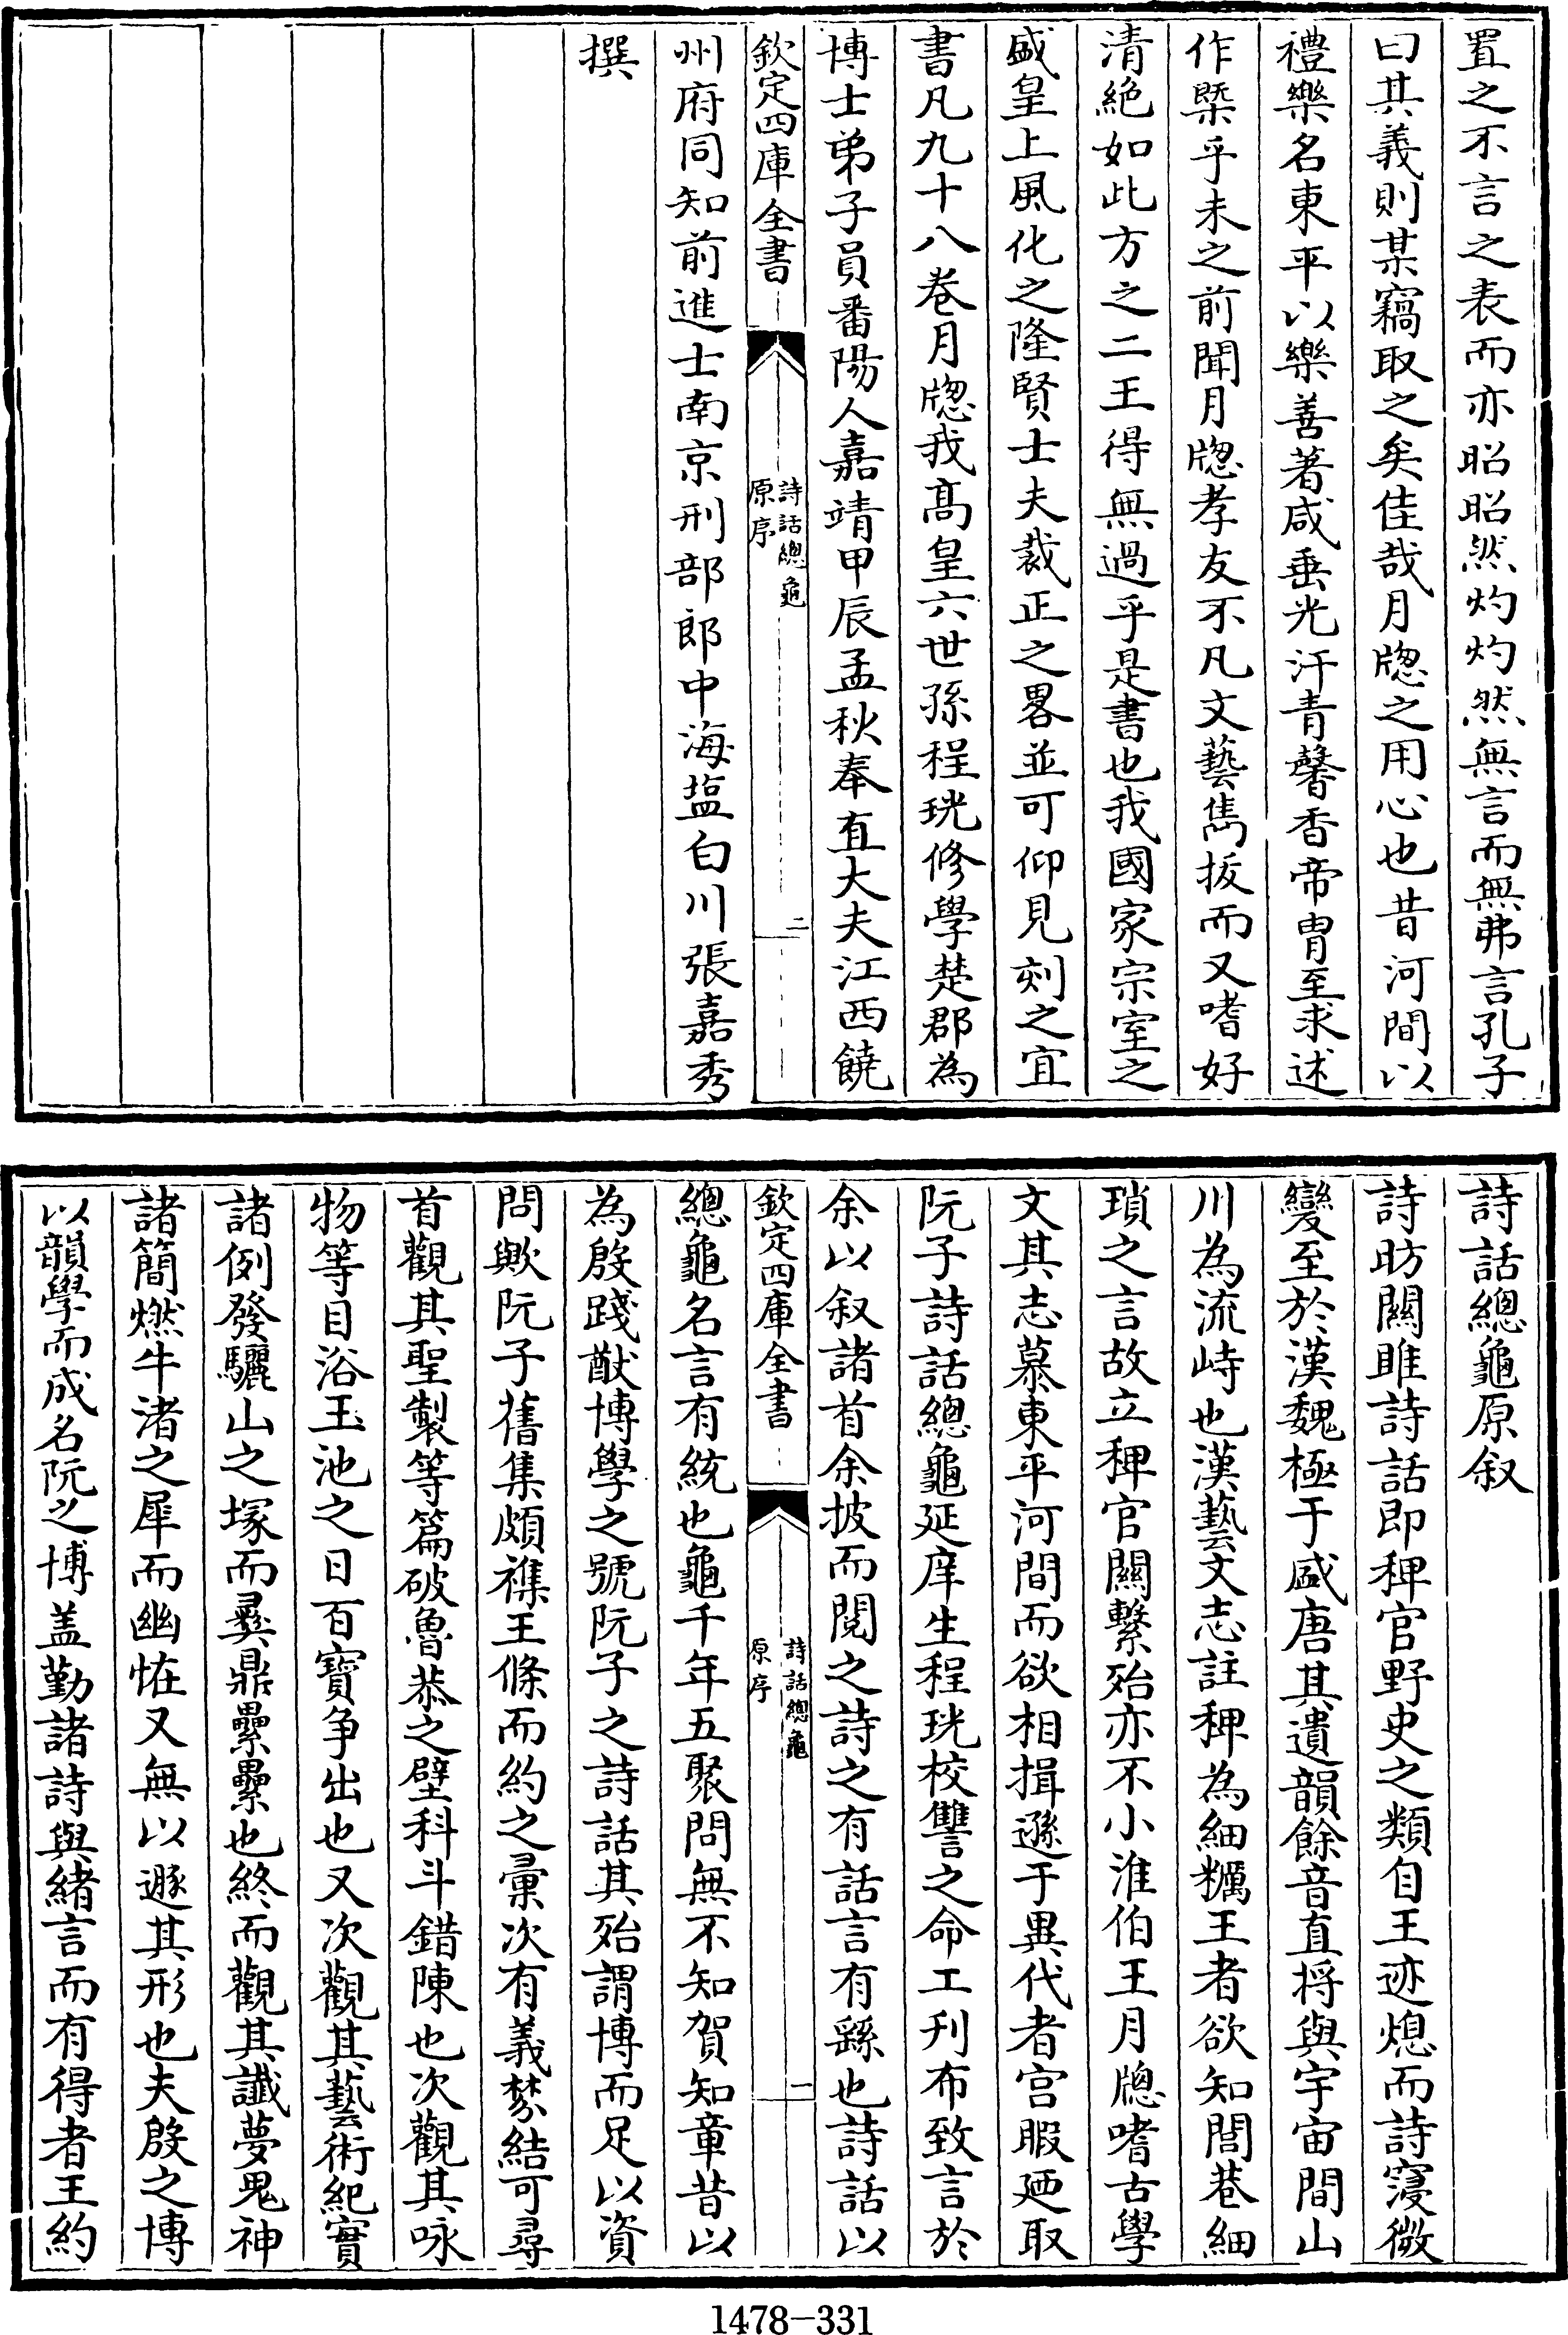 置之不言之表而亦昭昭然灼灼然無言而無弗言孔子
曰其義則某竊取之矣佳哉月牕之用心也昔河間以
禮樂名東平以樂善著咸垂光汗青馨香帝胄至求述
作槩乎未之前聞月牕孝友不凡文藝雋拔而又嗜好
清絶如此方之二王得無過乎是書也我國家宗室之
盛皇上風化之隆賢士夫裁正之畧並可仰見刻之宜
書凡九十八卷月牕我髙皇六世孫程珖修學楚郡為
博士弟子員番陽人嘉靖甲辰孟秋奉直大夫江西饒
欽定四庫全書
詩話總龜
原序
二
州府同知前進士南京刑部郎中海塩白川張嘉秀
撰
詩話總龜原叙
詩昉關雎詩話即稗官野史之類自王迹熄而詩寖微
變至於漢魏極于盛唐其遺韻餘音直将與宇宙間山
川為流峙也漢藝文志註稗為細糲王者欲知閭巷細
瑣之言故立稗官關繫殆亦不小淮伯王月牕嗜古學
文其志慕東平河間而欲相揖遜于異代者宫暇廼取
阮子詩話總龜延庠生程珖校讐之命工刋布致言於
余以叙諸首余披而閱之詩之有話言有繇也詩話以
欽定四庫全書
詩話總龜
原序
一
總龜名言有統也龜千年五聚問無不知賀知章昔以
為殷踐猷博學之號阮子之詩話其殆謂博而足以資
問歟阮子舊集頗襍王條而約之彙次有義棼結可尋
首觀其聖製等篇破魯恭之壁科斗錯陳也次觀其咏
物等目浴玉池之日百寶争出也又次觀其藝術紀實
諸例發驪山之塚而彝鼎纍纍也終而觀其讖夢鬼神
諸簡燃牛渚之犀而幽恠又無以遯其形也夫殷之博
以韻學而成名阮之博盖勤諸詩與緒言而有得者王約
1478-331